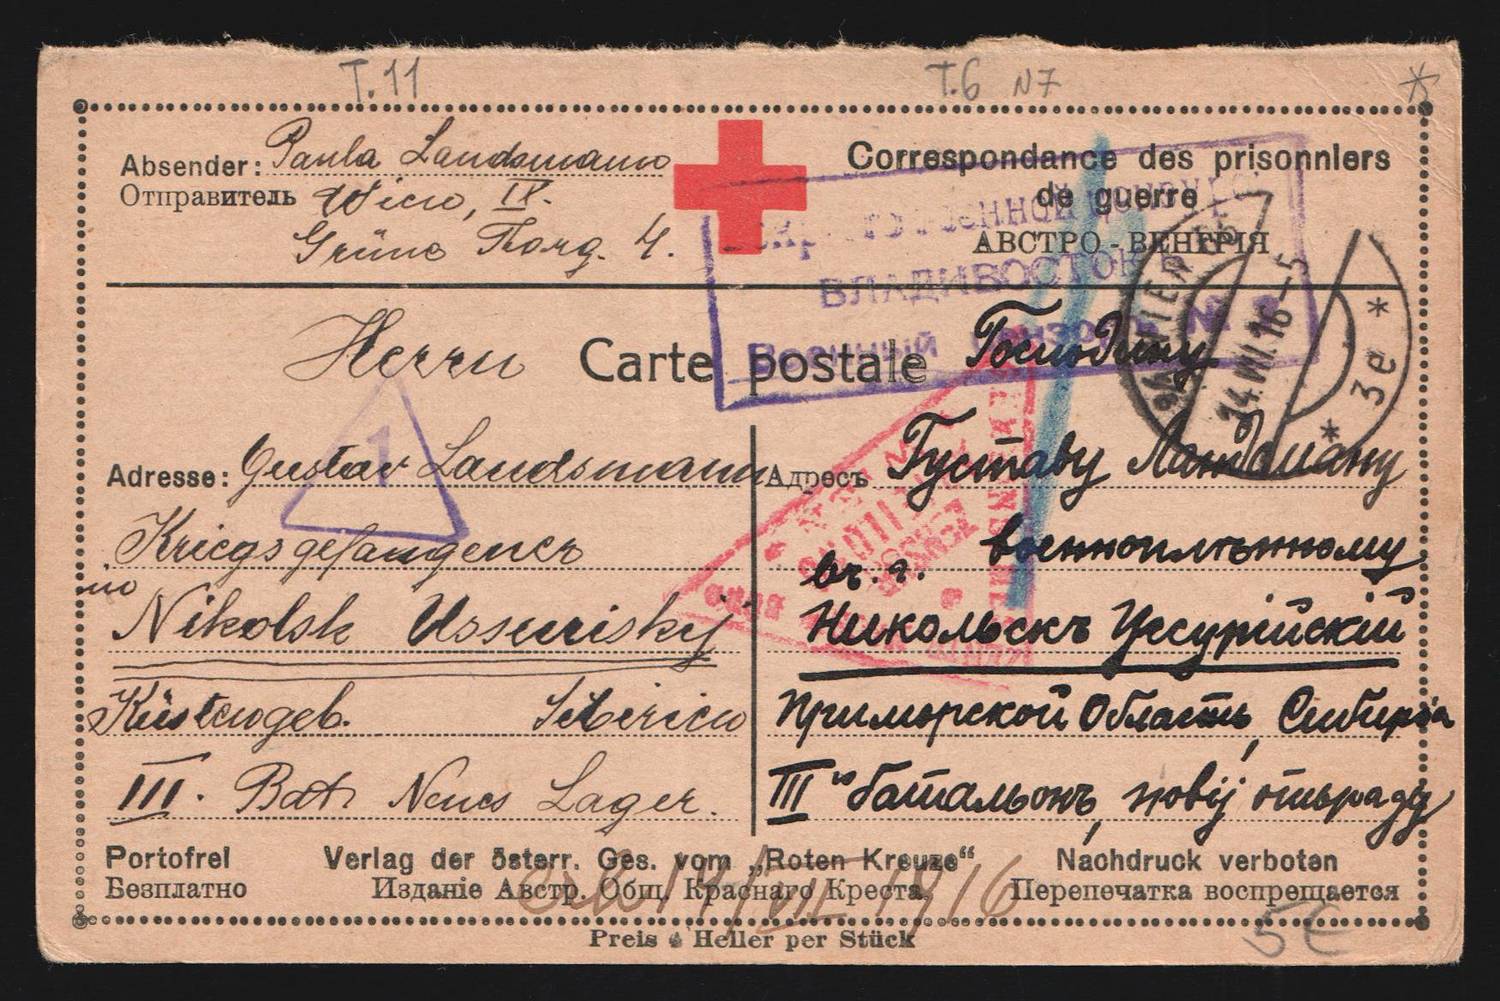 T.11
T.6 N7
Absender: Paula Landsmann
Отправитель Wien, IX.
Grüne Torg. 4.
Correspondance des prisonniers
de guerre
АВСТРО-ВЕНГРІЯ
ВЛАДИВОСТОК
Военный Цензоръ №
WIEN
14.VII.16-5
* 3e *
Herrn
Carte postale
Господину
1
Adresse: Gustav Landsmann
Kriegsgefangener
Nikolsk Ussurisky
Küstengeb. Siberien
III. Bat. Neues Lager.
Адресъ Густаву Ландсману
военноплѣнному
въ. г.
Никольскъ Уссурійскій
Приморской Область, Сибирь
III батальонъ, новіј
Portofrei
Безплатно
Verlag der österr. Ges. vom „Roten Kreuze“
Изданіе Австр. Общ. Краснаго Креста.
Nachdruck verboten
Перепечатка воспрещается
14/VII 1916
Preis Heller per Stück
5€